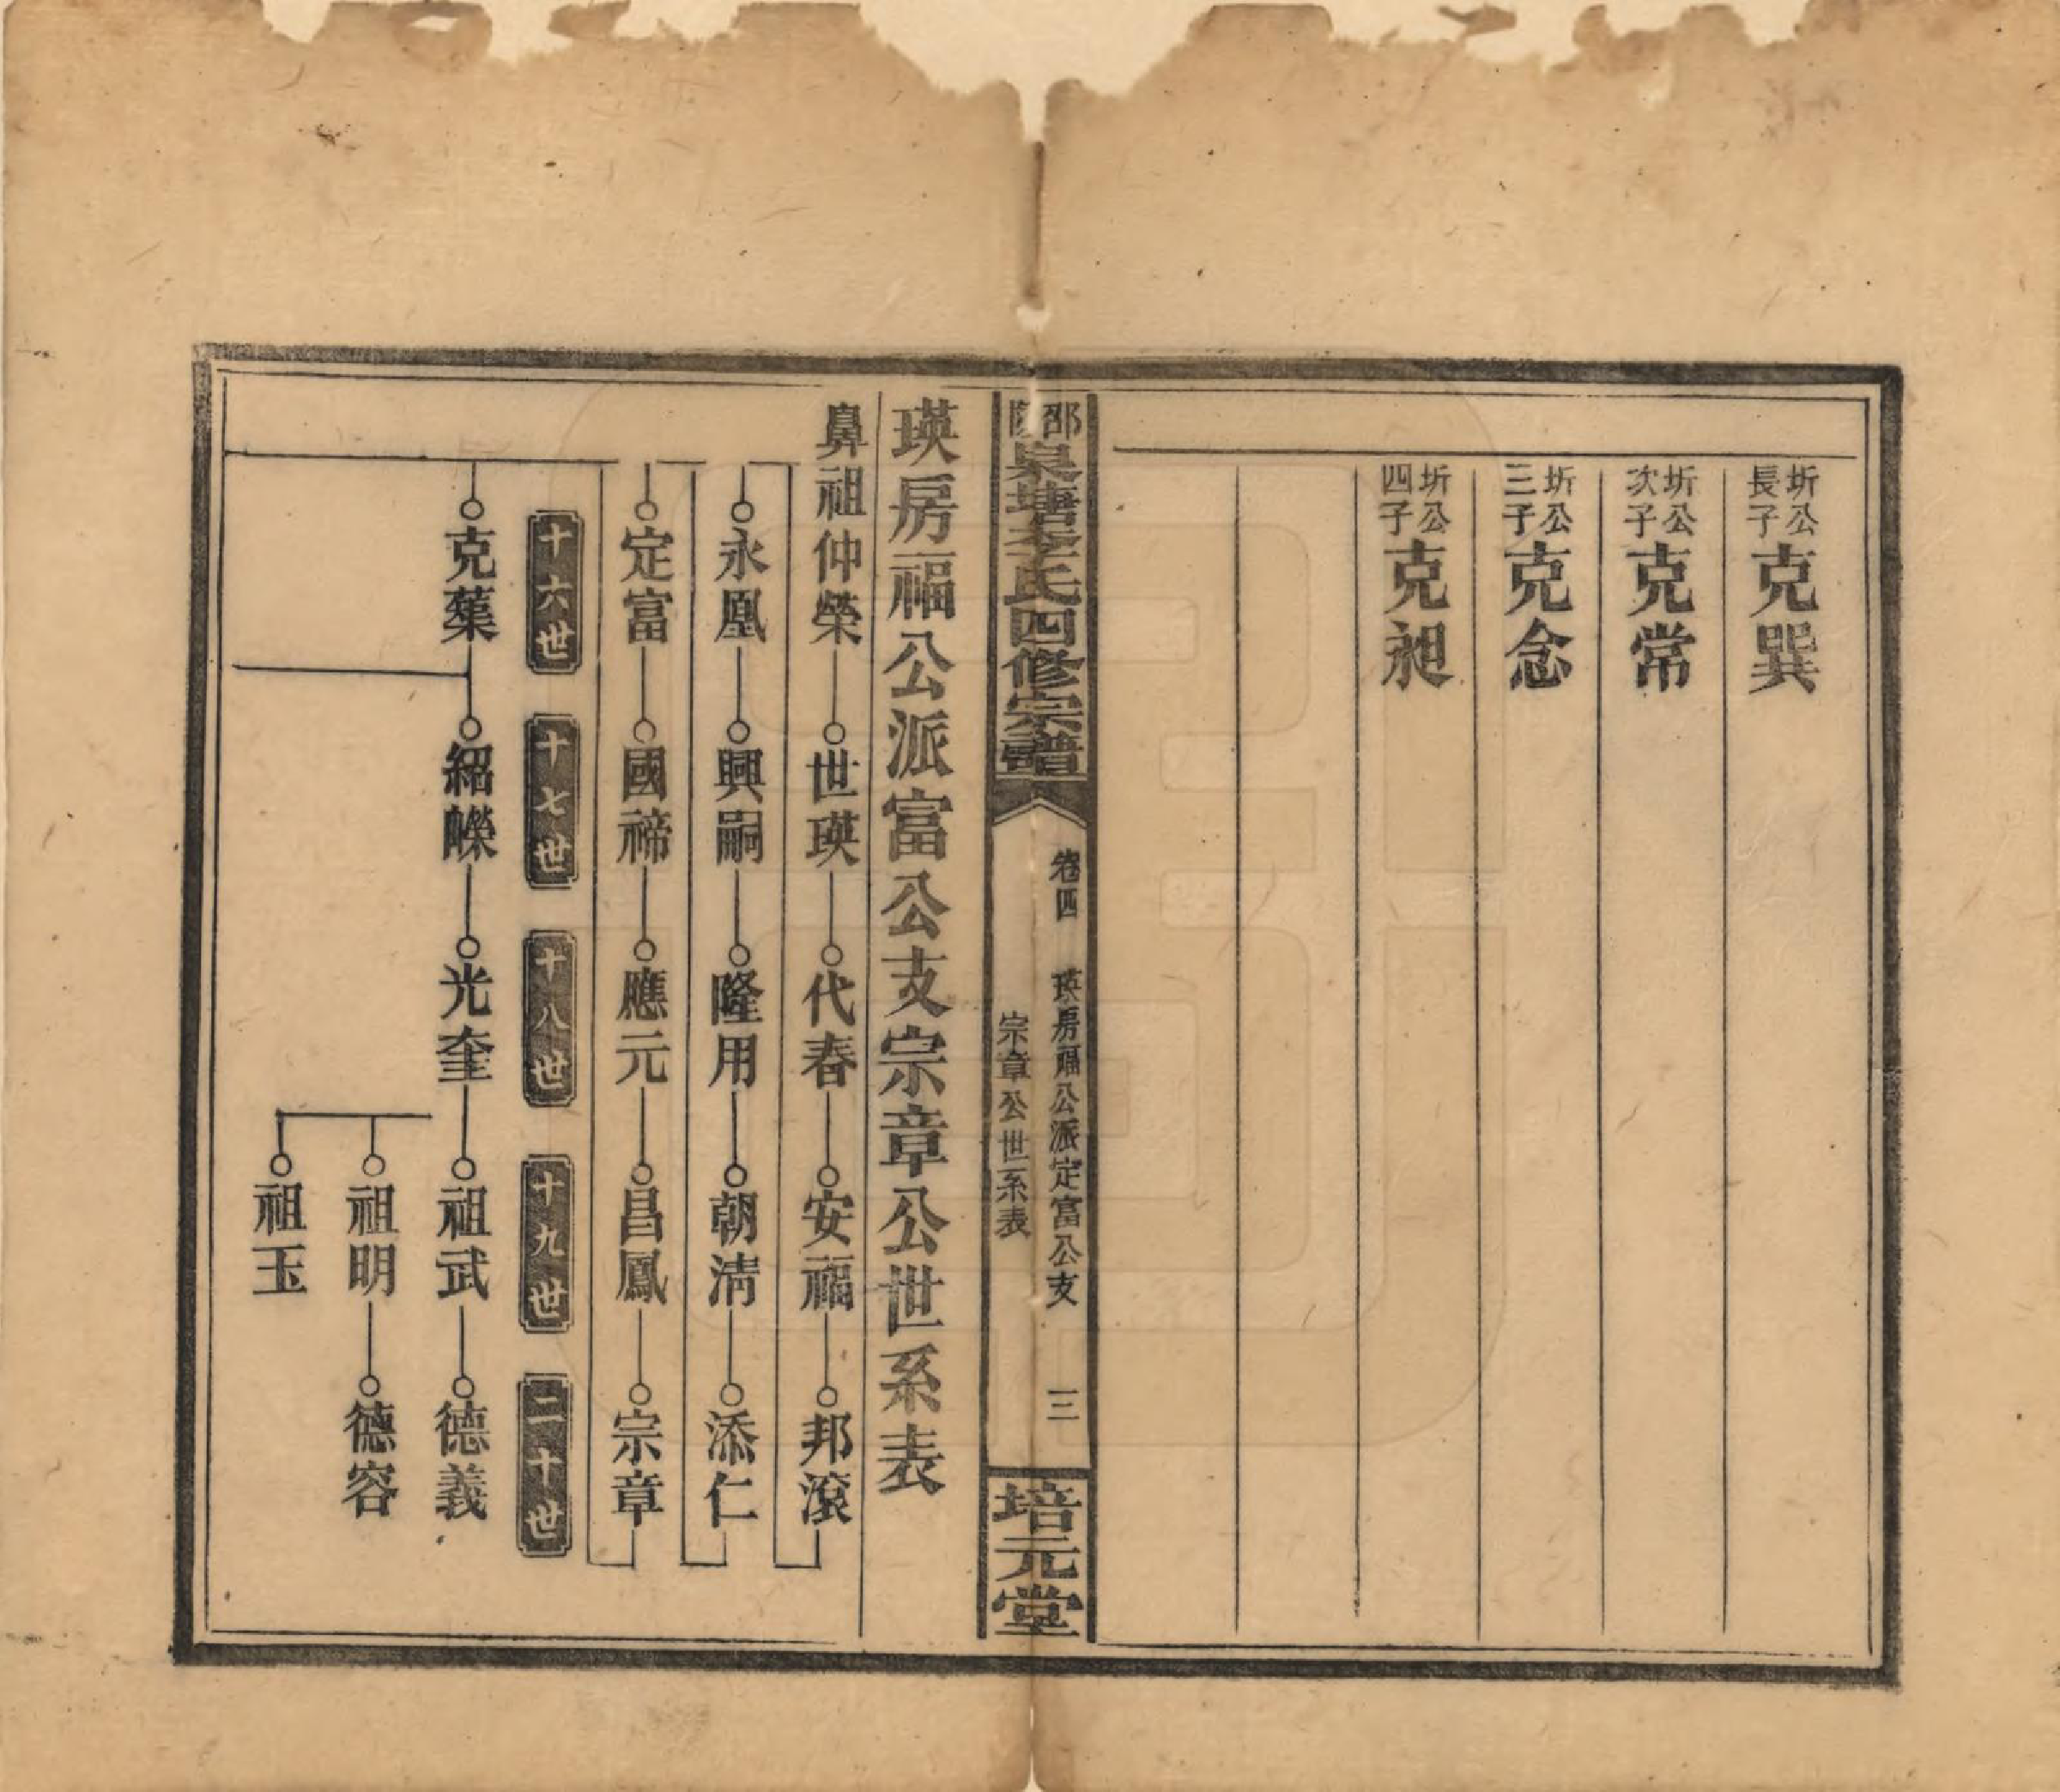 圻公長子克巽
圻公次子克常
圻公三子克念
圻公四子克昶
邵陵泉塘李氏四修宗譜
卷四
瑛房福公派定富公支
宗章公世系表
三
培元堂
瑛房福公派富公支宗章公世系表
鼻祖仲榮 世瑛 代春 安福 邦滾
永凰 興嗣 隆用 朝淸 添仁
定富 國禘 應元 昌鳳 宗章
十六世 十七世 十八世 十九世 二十世
克蕉 紹皪 光奎 祖武 德義
祖明 德容
祖玉